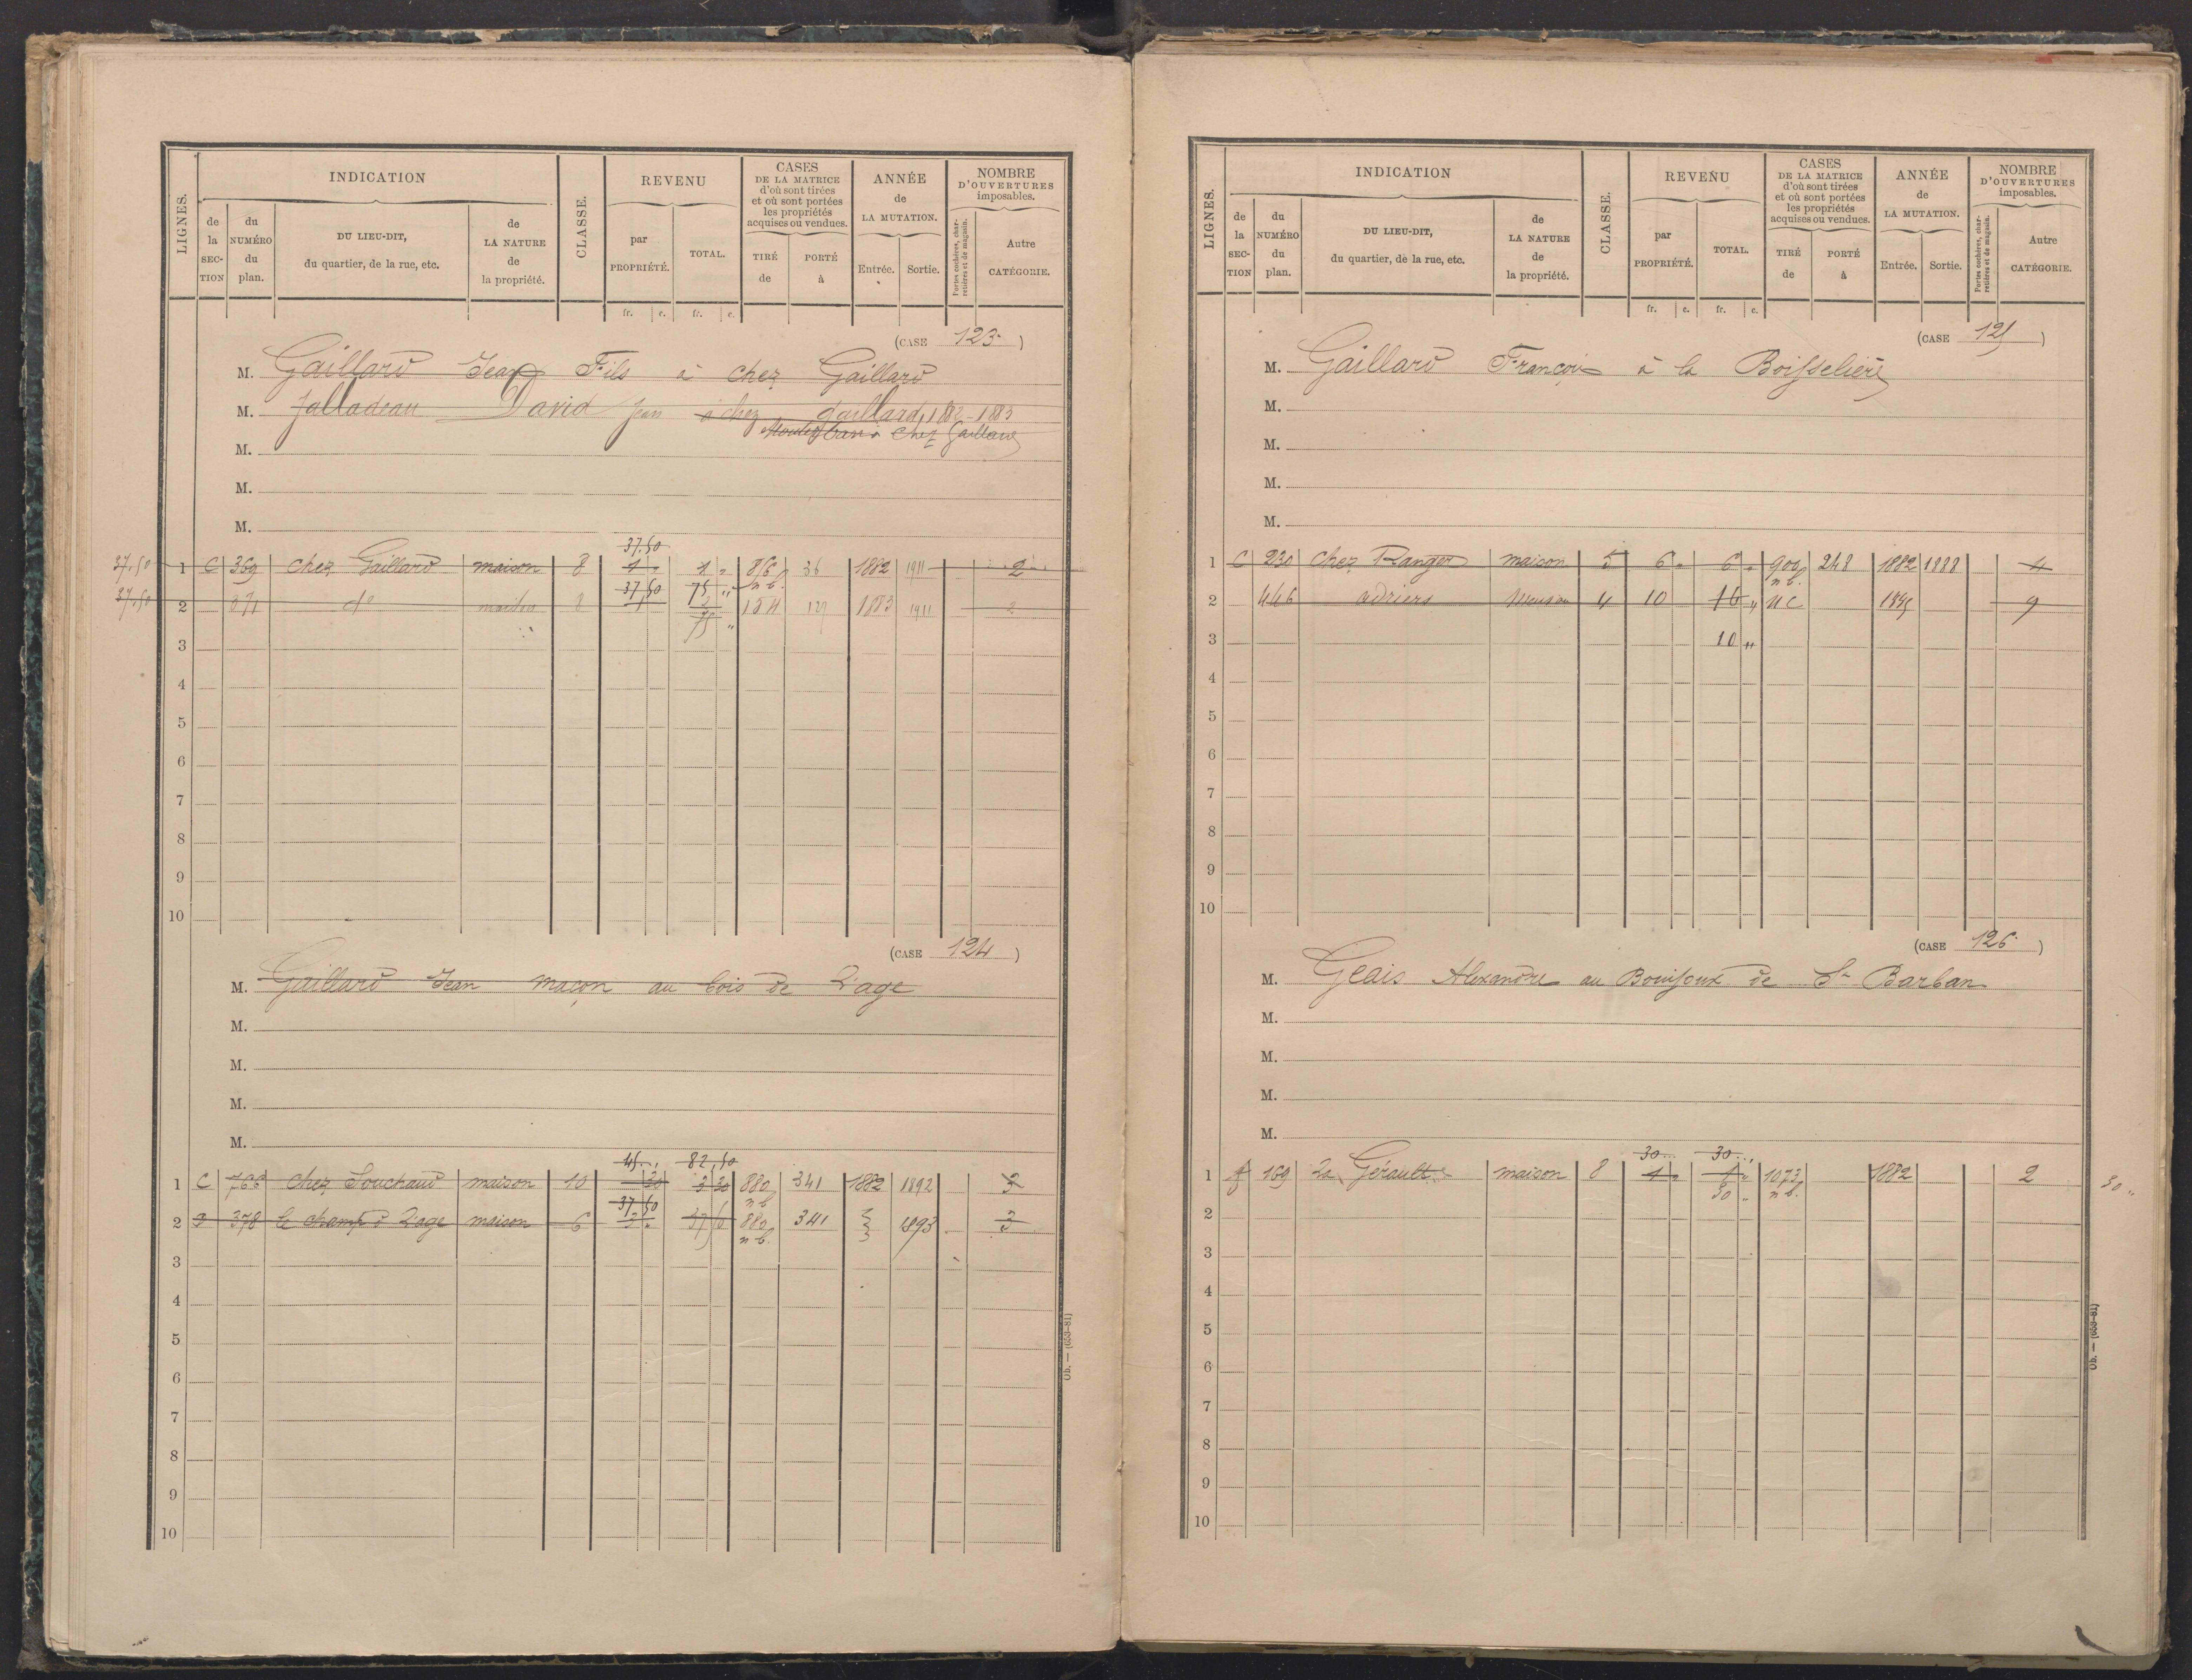 LIGNES.
INDICATION
de la SECTION
du NUMÉRO du plan.
DU LIEU-DIT, du quartier, de la rue, etc.
de LA NATURE de la propriété.
CLASSE.
REVENU
par PROPRIÉTÉ.
TOTAL.
CASES DE LA MATRICE d'où sont tirées et où sont portées les propriétés acquises ou vendues.
TIRÉ de
PORTÉ à
ANNÉE de LA MUTATION.
Entrée.
Sortie.
NOMBRE D'OUVERTURES imposables.
Portes cochères, charretières et de magasin.
Autre CATÉGORIE.
fr. c. fr. c.
(CASE 123 )
M. Gaillard Jean Fils à chez Gaillard
M. Jalladeau David Jean à chez Gaillard, 1882-1883
chez Gaillard
M.
M.
M.
37.50
37.50 1 C 369 chez Gaillard maison 8 1 " 1 " 816 36 1882 1911 2
37 50 75 " n b.
37.50 2 371 do maison 8 1 2 154 127 1883 1911 2
75 "
3
4
5
6
7
8
9
10
(CASE 124 )
M. Gaillard Jean maçon au bois de L'age
M.
M.
M.
M.
45 " 82,50
1 C 766 chez Souchaud maison 10 30 3 30 880 341 1882 1892 3
37 50 n b
2 D 378 le champ d L'age maison 6 3 " 37 50 880 341 1893 3
n b.
3
4
5
6
7
8
9
10
Ob. — (653-81)
LIGNES.
INDICATION
de la SECTION
du NUMÉRO du plan.
DU LIEU-DIT, du quartier, de la rue, etc.
de LA NATURE de la propriété.
CLASSE.
REVENU
par PROPRIÉTÉ.
TOTAL.
CASES DE LA MATRICE d'où sont tirées et où sont portées les propriétés acquises ou vendues.
TIRÉ de
PORTÉ à
ANNÉE de LA MUTATION.
Entrée.
Sortie.
NOMBRE D'OUVERTURES imposables.
Portes cochères, charretières et de magasin.
Autre CATÉGORIE.
fr. c. fr. c.
(CASE 125 )
M. Gaillard François à la Boisselière
M.
M.
M.
M.
1 C 230 chez Ranger maison 5 6 " 6 " 900 248 1882 1888 4
n b.
2 446 adriers maison 4 10 16 " NC 1895 9
3 10 "
4
5
6
7
8
9
10
(CASE 126 )
M. Geais Alexandre au Bouijoux de St Barban
M.
M.
M.
M.
30 " 30 "
1 f 169 La Gérault maison 8 1 " 1 " 1073 1882 2 30 "
30 " n b.
2
3
4
5
6
7
8
9
10
Ob. — (653-81)